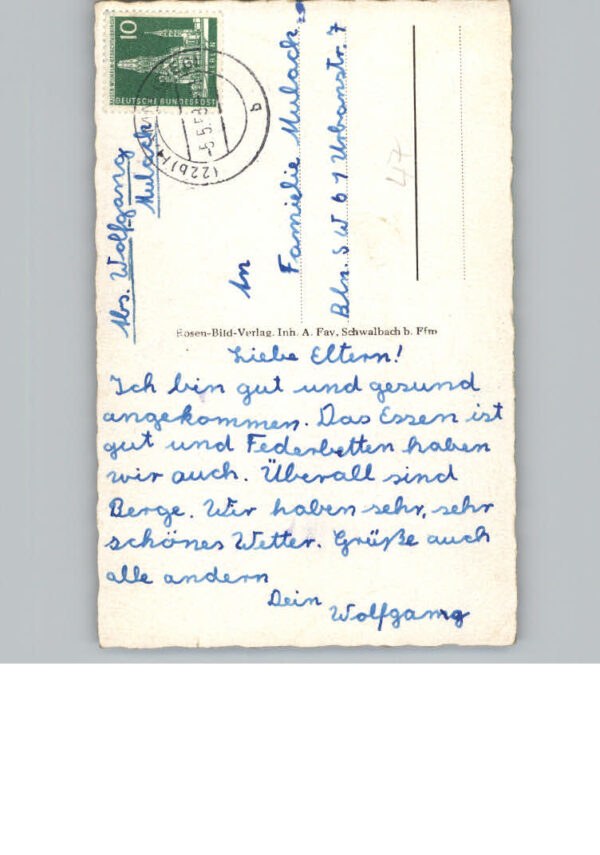 10
DEUTSCHE BUNDESPOST
BERLIN
(22b)
-5.5.58
b
Abs. Wolfgang
Mulack
An
Familie Mulack
Bln. SW 61 Urbanstr. 7
47
Rosen-Bild-Verlag. Inh. A. Fay, Schwalbach b. Ffm
Liebe Eltern!
Ich bin gut und gesund
angekommen. Das Essen ist
gut und Federbetten haben
wir auch. Überall sind
Berge. Wir haben sehr, sehr
schönes Wetter. Grüße auch
alle andern
Dein Wolfgang